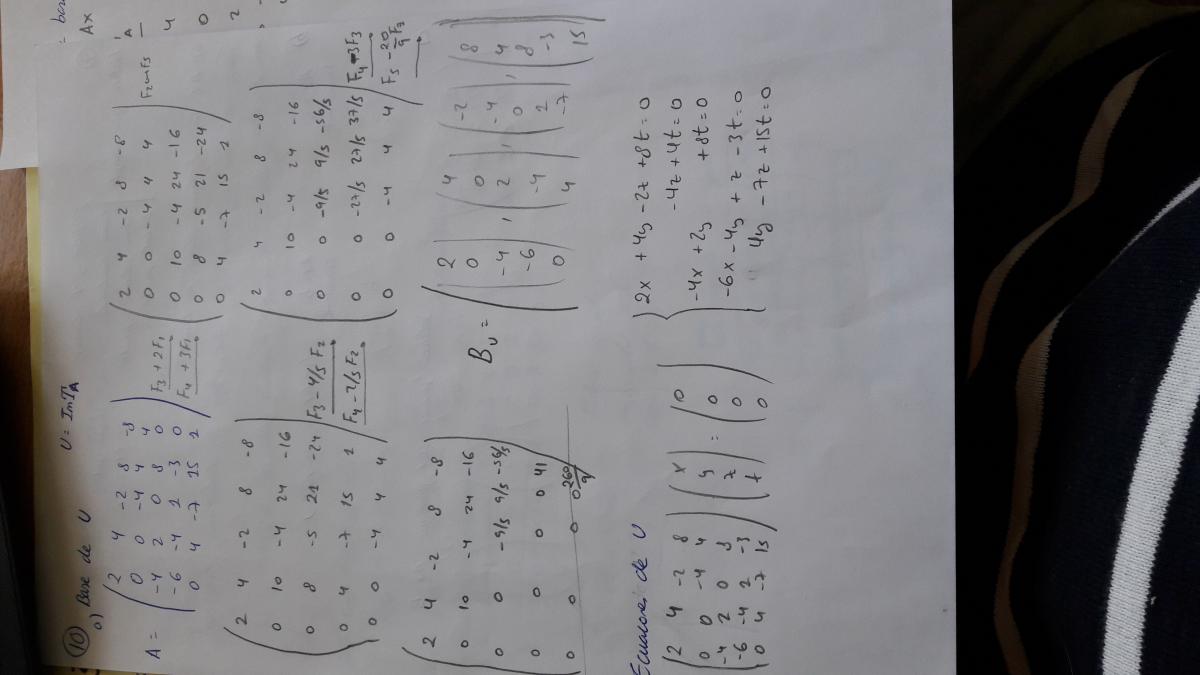 10
a) Base de U U = Im T_A
A = ( 2 4 -2 8 -8
0 0 -4 4 4
-4 2 0 8 0
-6 -4 2 -3 0
0 4 -7 15 2 )
F3 + 2F1
F4 + 3F1
( 2 4 -2 8 -8
0 0 -4 4 4
0 10 -4 24 -16
0 8 -5 21 -24
0 4 -7 15 2 )
( 2 4 -2 8 -8
0 10 -4 24 -16
0 8 -5 21 -24
0 4 -7 15 2
0 0 -4 4 4 )
F3 - 4/5 F2
F4 - 2/5 F2
( 2 4 -2 8 -8
0 10 -4 24 -16
0 0 -9/5 9/5 -56/5
0 0 -27/5 27/5 37/5
0 0 -4 4 4 )
F4 - 3F3
F5 - 20/9 F3
( 2 4 -2 8 -8
0 10 -4 24 -16
0 0 -9/5 9/5 -56/5
0 0 0 0 41
0 0 0 0 260/9 )
B_U = ( ( 2 0 -4 -6 0 ) , ( 4 0 2 -4 4 ) , ( -2 -4 0 2 -7 ) , ( 8 4 8 -3 15 ) )
Ecuaciones de U
( 2 4 -2 8
0 0 -4 4
-4 2 0 8
-6 -4 2 -3
0 4 -7 15 ) ( x y z t ) = ( 0 0 0 0 )
{ 2x + 4y - 2z + 8t = 0
-4z + 4t = 0
-4x + 2y + 8t = 0
-6x - 4y + z - 3t = 0
4y - 7z + 15t = 0
Ax
A
4
0
2